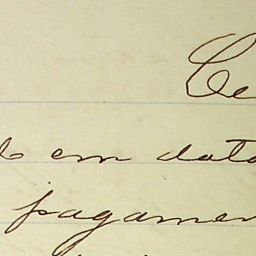 Ce
em data
pagamen